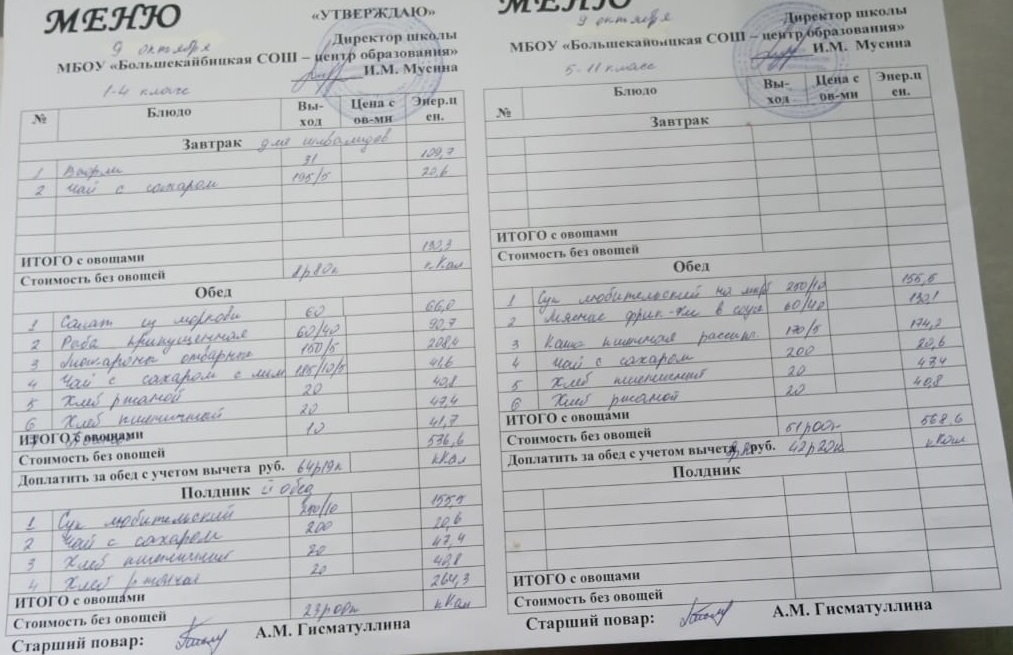 МЕНЮ
«УТВЕРЖДАЮ»
9 октября
Директор школы
МБОУ «Большекайбицкая СОШ – центр образования»
И.М. Мусина
1-4 класс
№ Блюдо Вы-ход Цена с ов-ми Энер.ц ен.
Завтрак для инвалидов
1 Вафли 31 109,7
2 Чай с сахаром 195/5 20,6
ИТОГО с овощами 130,3
Стоимость без овощей 8р80к кКал
Обед
1 Салат из моркови 60 66,0
2 Рыба припущенная 60/40 90,7
3 Макароны отварные 150/5 208,4
4 Чай с сахаром с лим 185/10/5 41,6
5 Хлеб ржаной 20 40,8
6 Хлеб пшеничный 20 47,4
10 41,7
ИТОГО с овощами 536,6
Стоимость без овощей кКал
Доплатить за обед с учетом вычета руб. 64р19к
Полдник й обед
1 Суп любительский 250/10 155,5
2 Чай с сахаром 200 20,6
3 Хлеб пшеничный 20 47,4
4 Хлеб ржаной 20 40,8
ИТОГО с овощами 264,3
Стоимость без овощей 23р00к кКал
Старший повар: А.М. Гисматуллина
МЕНЮ
9 октября
Директор школы
МБОУ «Большекайбицкая СОШ – центр образования»
И.М. Мусина
5-11 класс
№ Блюдо Вы-ход Цена с ов-ми Энер.ц ен.
Завтрак
ИТОГО с овощами
Стоимость без овощей
Обед
1 Суп любительский на 250/10 155,5
2 Мясные фрик-ки в соусе 60/40 130,1
3 Каша пшенная рассып. 170/5 174,2
4 Чай с сахаром 200 20,6
5 Хлеб пшеничный 20 47,4
6 Хлеб ржаной 20 40,8
ИТОГО с овощами 568,6
Стоимость без овощей 51р00к кКал
Доплатить за обед с учетом вычета руб. 42р20к
Полдник
ИТОГО с овощами
Стоимость без овощей
Старший повар: А.М. Гисматуллина